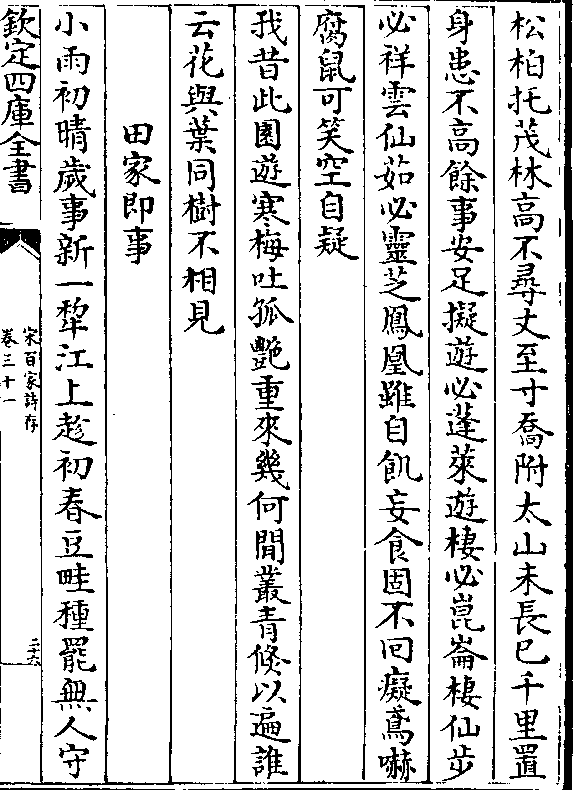 松柏托茂林高不尋丈至寸喬附太山未長已千里置
身患不高餘事安足擬遊必蓬萊遊棲必崑崙棲仙步
必祥雲仙茹必靈芝鳳凰雖自飢妄食固不回癡鳶嚇
腐鼠可笑空自疑
我昔此園遊寒梅吐孤艷重來幾何閒叢青倐以遍誰
云花與葉同樹不相見
田家即事
小雨初晴歲事新一犂江上趁初春豆畦種罷無人守
欽定四庫全書
宋百家詩存
卷三十一
二十六